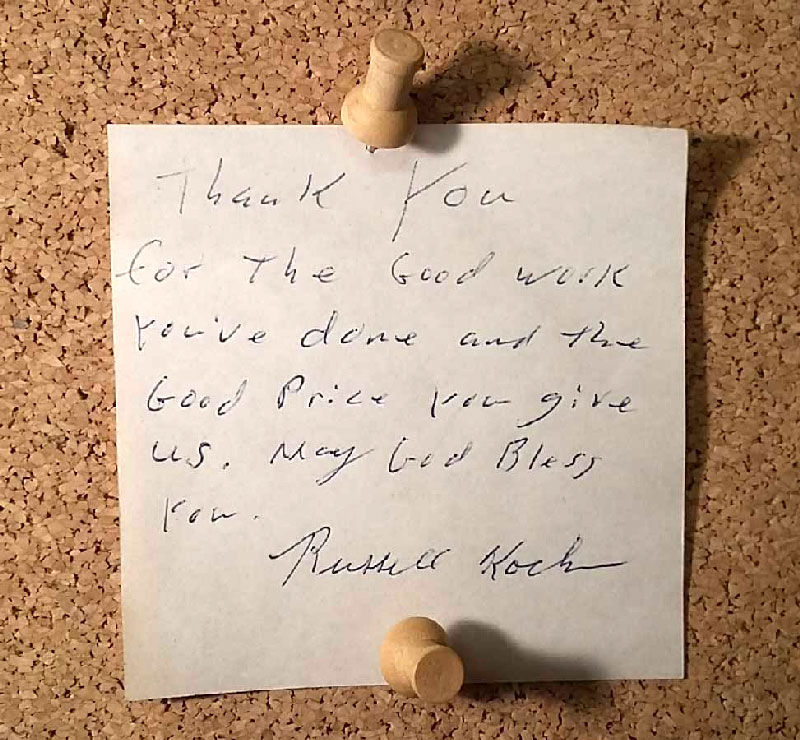 Thank You
for The Good work
You've done and the
Good Price you give
us. May God Bless
You.
Russell Koch